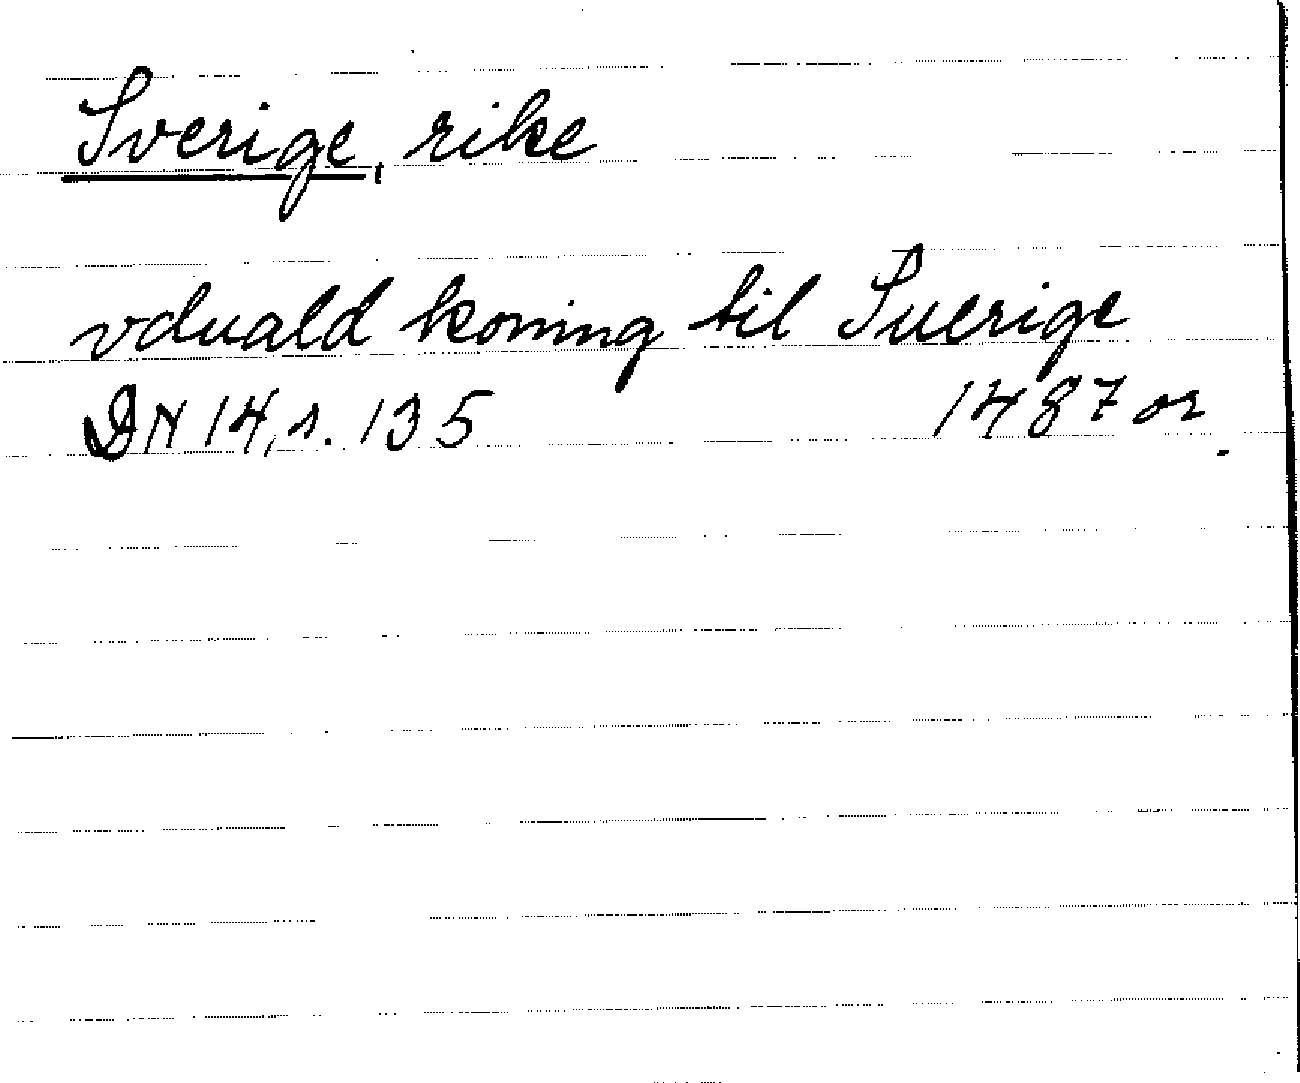 Sverige, rike
vduald koning til Suerige
DN 14, s. 135 1487 or.